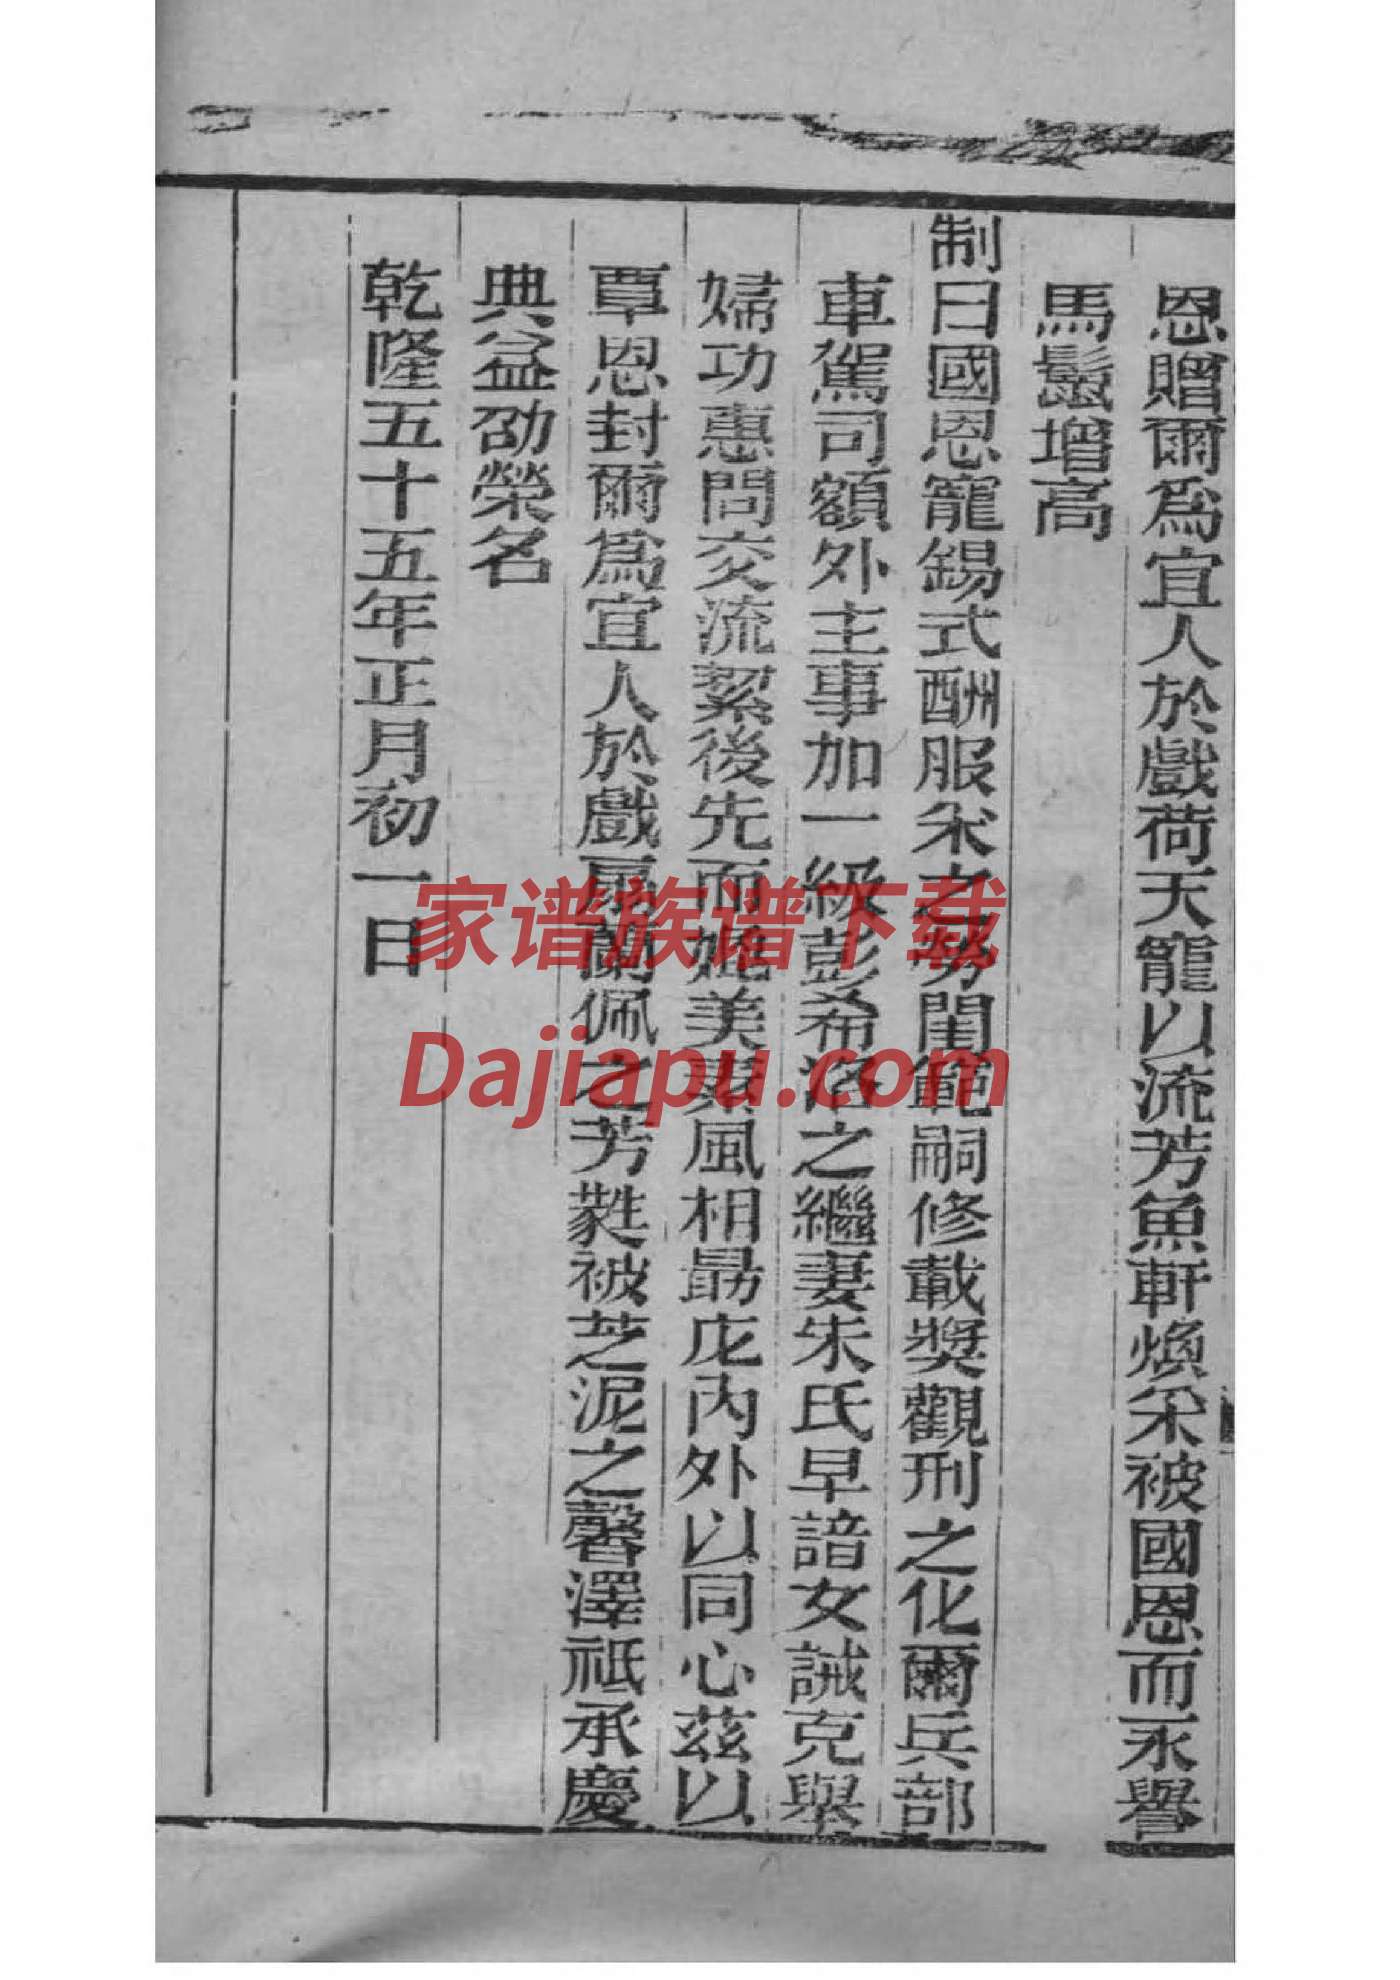 恩贈爾爲宜人於戲荷天寵以流芳魚軒煥采被國恩而永譽
馬鬛增高
制曰國恩寵錫式酬服采之勞閨範嗣修載奬觀刑之化爾兵部
車駕司額外主事加一級彭希洛之繼妻朱氏早諳女誡克舉
婦功惠問交流絜後先而媲美素風相勗庀內外以同心茲以
覃恩封爾爲宜人於戲扇蘭佩之芳蕤被芝泥之馨澤祇承慶
典益劭榮名
乾隆五十五年正月初一日
家谱族谱下载
Dajiapu.com